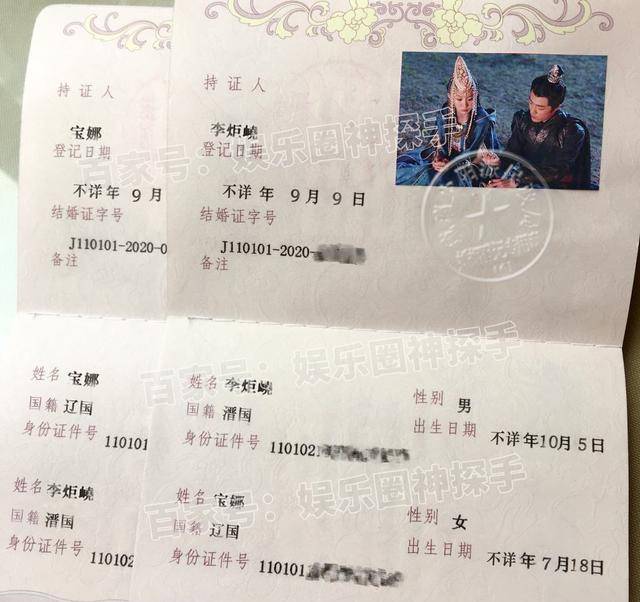 持证人
宝娜
登记日期
不详年 9月
结婚证字号
J110101-2020-0
备注
姓名 宝娜
国籍 辽国
身份证件号 110101
姓名 李炬峣
国籍 溍国
身份证件号 110102
持证人
李炬峣
登记日期
不详年 9月9日
结婚证字号
J110101-2020-
备注
姓名 李炬峣
性别 男
国籍 溍国
出生日期 不详年10月5日
身份证件号 1101021
姓名 宝娜
性别 女
国籍 辽国
出生日期 不详年7月18日
身份证件号 110101
百家号：娱乐圈神探手
百家号：娱乐圈神探手
百家号：娱乐圈神探手